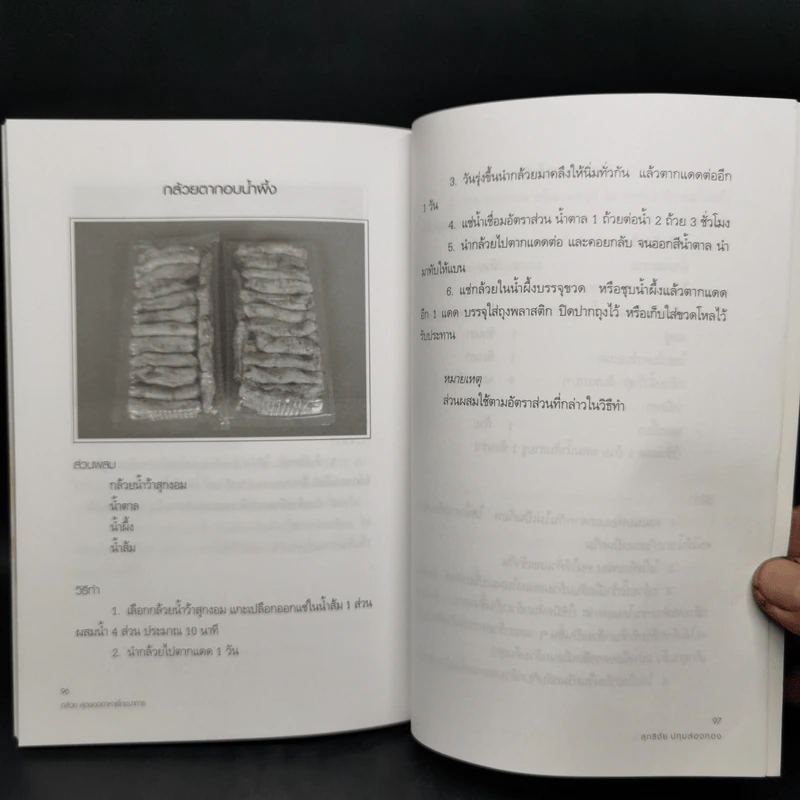 กล้วยตากอบน้ำผึ้ง
ส่วนผสม
กล้วยน้ำว้าสุกงอม
น้ำตาล
น้ำผึ้ง
น้ำส้ม
วิธีทำ
1. เลือกกล้วยน้ำว้าสุกงอม แกะเปลือกออกแช่ในน้ำส้ม 1 ส่วน
ผสมน้ำ 4 ส่วน ประมาณ 10 นาที
2. นำกล้วยไปตากแดด 1 วัน
96
กล้วย สุดยอดอาหารโภชนาการ
3. วันรุ่งขึ้นนำกล้วยมาคลึงให้นิ่มทั่วกัน แล้วตากแดดต่ออีก
1 วัน
4. แช่น้ำเชื่อมอัตราส่วน น้ำตาล 1 ถ้วยต่อน้ำ 2 ถ้วย 3 ชั่วโมง
5. นำกล้วยไปตากแดดต่อ และคอยกลับ จนออกสีน้ำตาล นำ
มาทับให้แบน
6. แช่กล้วยในน้ำผึ้งบรรจุขวด หรือชุบน้ำผึ้งแล้วตากแดด
อีก 1 แดด บรรจุใส่ถุงพลาสติก ปิดปากถุงไว้ หรือเก็บใส่ขวดโหลไว้
รับประทาน
หมายเหตุ
ส่วนผสมใช้ตามอัตราส่วนที่กล่าวในวิธีทำ
97
สุทธิชัย ปทุมล่องทอง